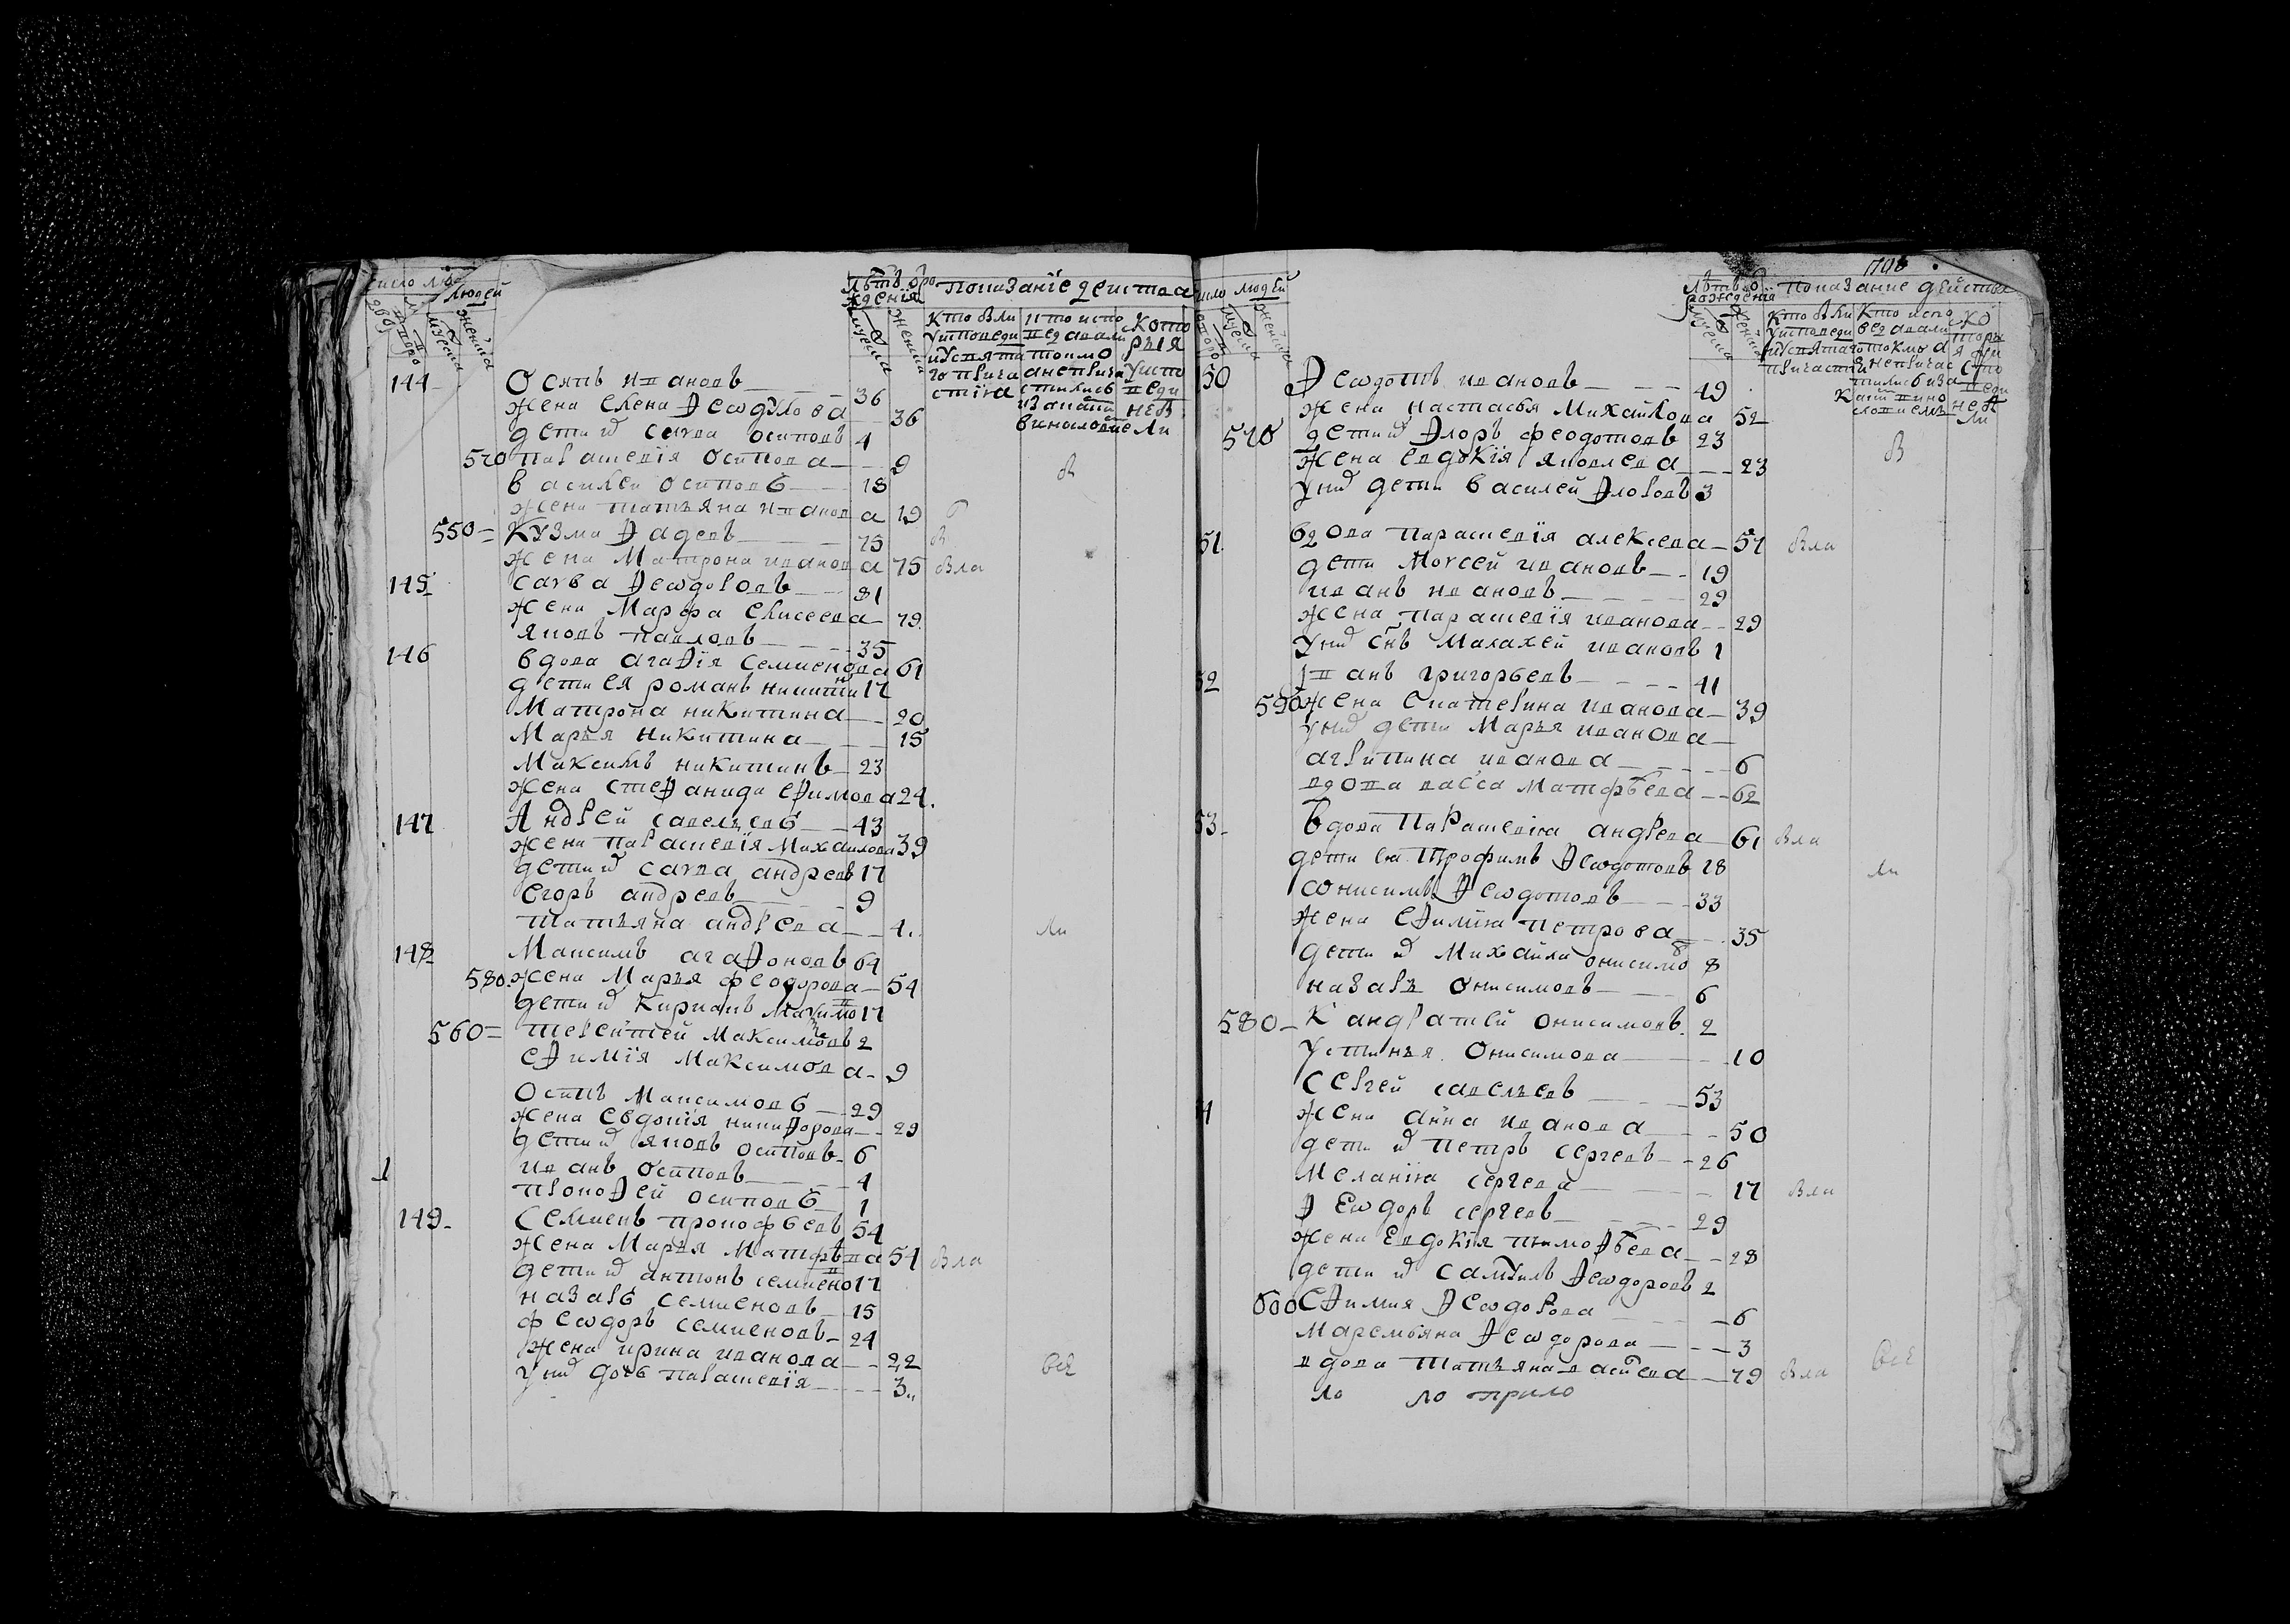 число людей
дво
мужеска
женска
лѣтъ от рождения
мужеска
женска
показание действа
кто были у исповеди и у святаго причастия
кто исповедались токмо а не причастились и за каким винословие
которыя у исповеди не были
144 Осипъ ивановъ 36
жена елена Ѳеѡдулова 36
дети их савва осиповъ 4
520 параскевия осипова 9
василеи осиповъ 18
жена татьяна иванова 19
550 Кузма Ѳадеевъ 75
жена Матрона иванова 75 Бла
145 савва Ѳеѡдоровъ 81
жена Марфа елисеева 79
яковъ павловъ 35
146 вдова агаѲия семиенова 61
дети ея романъ никитин 17
Матрона никитина 20
Марья никитина 15
Максимъ никитинъ 23
жена СтеѲанида еѲимова 24
147 Андрей савельевъ 43
жена параскевия Михаилова 39
дети их савва андреевъ 17
егоръ андреевъ 9
татьяна андреева 4
ли
148 Максимъ агаѲоновъ 64
580 жена Марья феодорова 54
дети их Кириакъ Максимов 17
560 терентей Максимовъ 2
еѲимия Максимова 9
Осипъ Максимовъ 29
жена евдокия никиѲорова 29
дети их яковъ осиповъ 6
иванъ осиповъ 4
прокоѲей осиповъ 1
149 Семиенъ прокофьевъ 54
жена Марья Матфѣева 54 Бла
дети их антонъ семиенов 17
назаръ семиеновъ 15
феѡдоръ семиеновъ 24
жена ирина иванова 22
у них дочь параскевия 3
все
число людей
мужеска
женска
лѣтъ от рождения
мужеска
женска
показание действа
кто были у исповеди и у святаго причастия
50 Ѳеѡдотъ ивановъ 49
жена настасья Михайлова 52
570 дети их Ѳлоръ феодотовъ 23
жена евдокия яковлева 23
у них дети василей Ѳлоровъ 3
51 вдова параскевия алексеева 57 Бла
дети Моvсей ивановъ 19
иванъ ивановъ 29
жена параскевия иванова 29
у них снъ Малахей ивановъ 1
52 иванъ григорьевъ 41
590 жена екатерина иванова 39
у них дети Марья иванова
агрипина иванова 6
вдова васса Матфѣева 62
53 вдова параскевия андреева 61 Бла
дети ея трофимъ Ѳеѡдотовъ 18
ли
ѡнисимъ Ѳеѡдотовъ 33
жена еѲимия петрова 35
дети их Михайла онисимов 8
назаръ онисимовъ 6
580 кандратей онисимовъ 2
устинья онисимова 10
Сергей савельевъ 53
жена анна иванова 50
дети их петръ сергеевъ 26
Мелания сергеева 17 Бла
Ѳеѡдоръ сергеевъ 29
жена евдокия тимоѲѣева 28
дети их самуилъ Ѳеѡдоровъ 2
600 еѲимия Ѳеѡдорова 6
маремьяна Ѳеѡдорова 3
вдова татьяна 79 Бла
все
ло ло прило